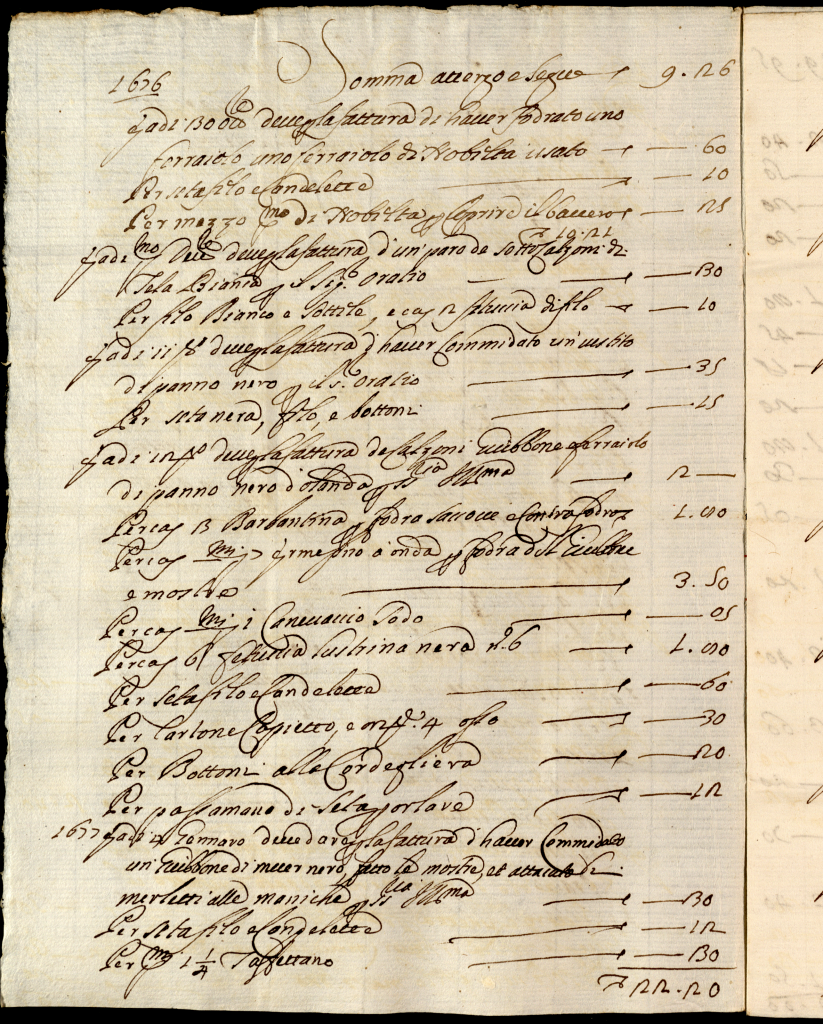 1676 Somma atterzo e segue 9. 26
E adi 30 8bre deve p la fattura di haver fodrato uno
ferraiolo uno ferraiolo di Nobiltà usato 60
Per seta filo e Cordelette 10
Per mezzo di Nobiltà p Coprire il bavero 25
10.21
E adi deve p la fattura d'un paro de Sotto Calzoni di
Tela Bianca p Il Sigr. Oratio 30
Per filo Bianco e Sottile, e 2 fetuccia di filo 10
E adi 11 deve p la fattura d'haver Commidato un vestito
di panno nero p il Sr. Oratio 35
Per seta nera, filo, e bottoni 15
E adi 12 deve p la fattura de Calzoni Giubbone e ferraiolo
di panno nero d'olanda p Sua Illma 2
Per 3 Barbantina p fodra saccocce e Contrafodro 1. 00
Per ermesino a onda p fodra del Giubbone
e mostre 3. 50
Per 1 Canevaccio Sodo 05
Per 6 fetuccia lustrina nera no. 6 1. 00
Per seta filo e Cordelette 60
Per Cartone Coppietto, e 4 osso 30
Per Bottoni alla Cordegliera 20
Per passamano di Seta p orlare 12
1677 E adi Gennaro deve dare p la fattura d'haver Commidato
un Giubbone di nero, fatto le mostre, et attaccate di
merletti alle maniche p Sua Illma 30
Per seta filo e Cordelette 12
Per 1 1/4 Taffettano 30
22. 20